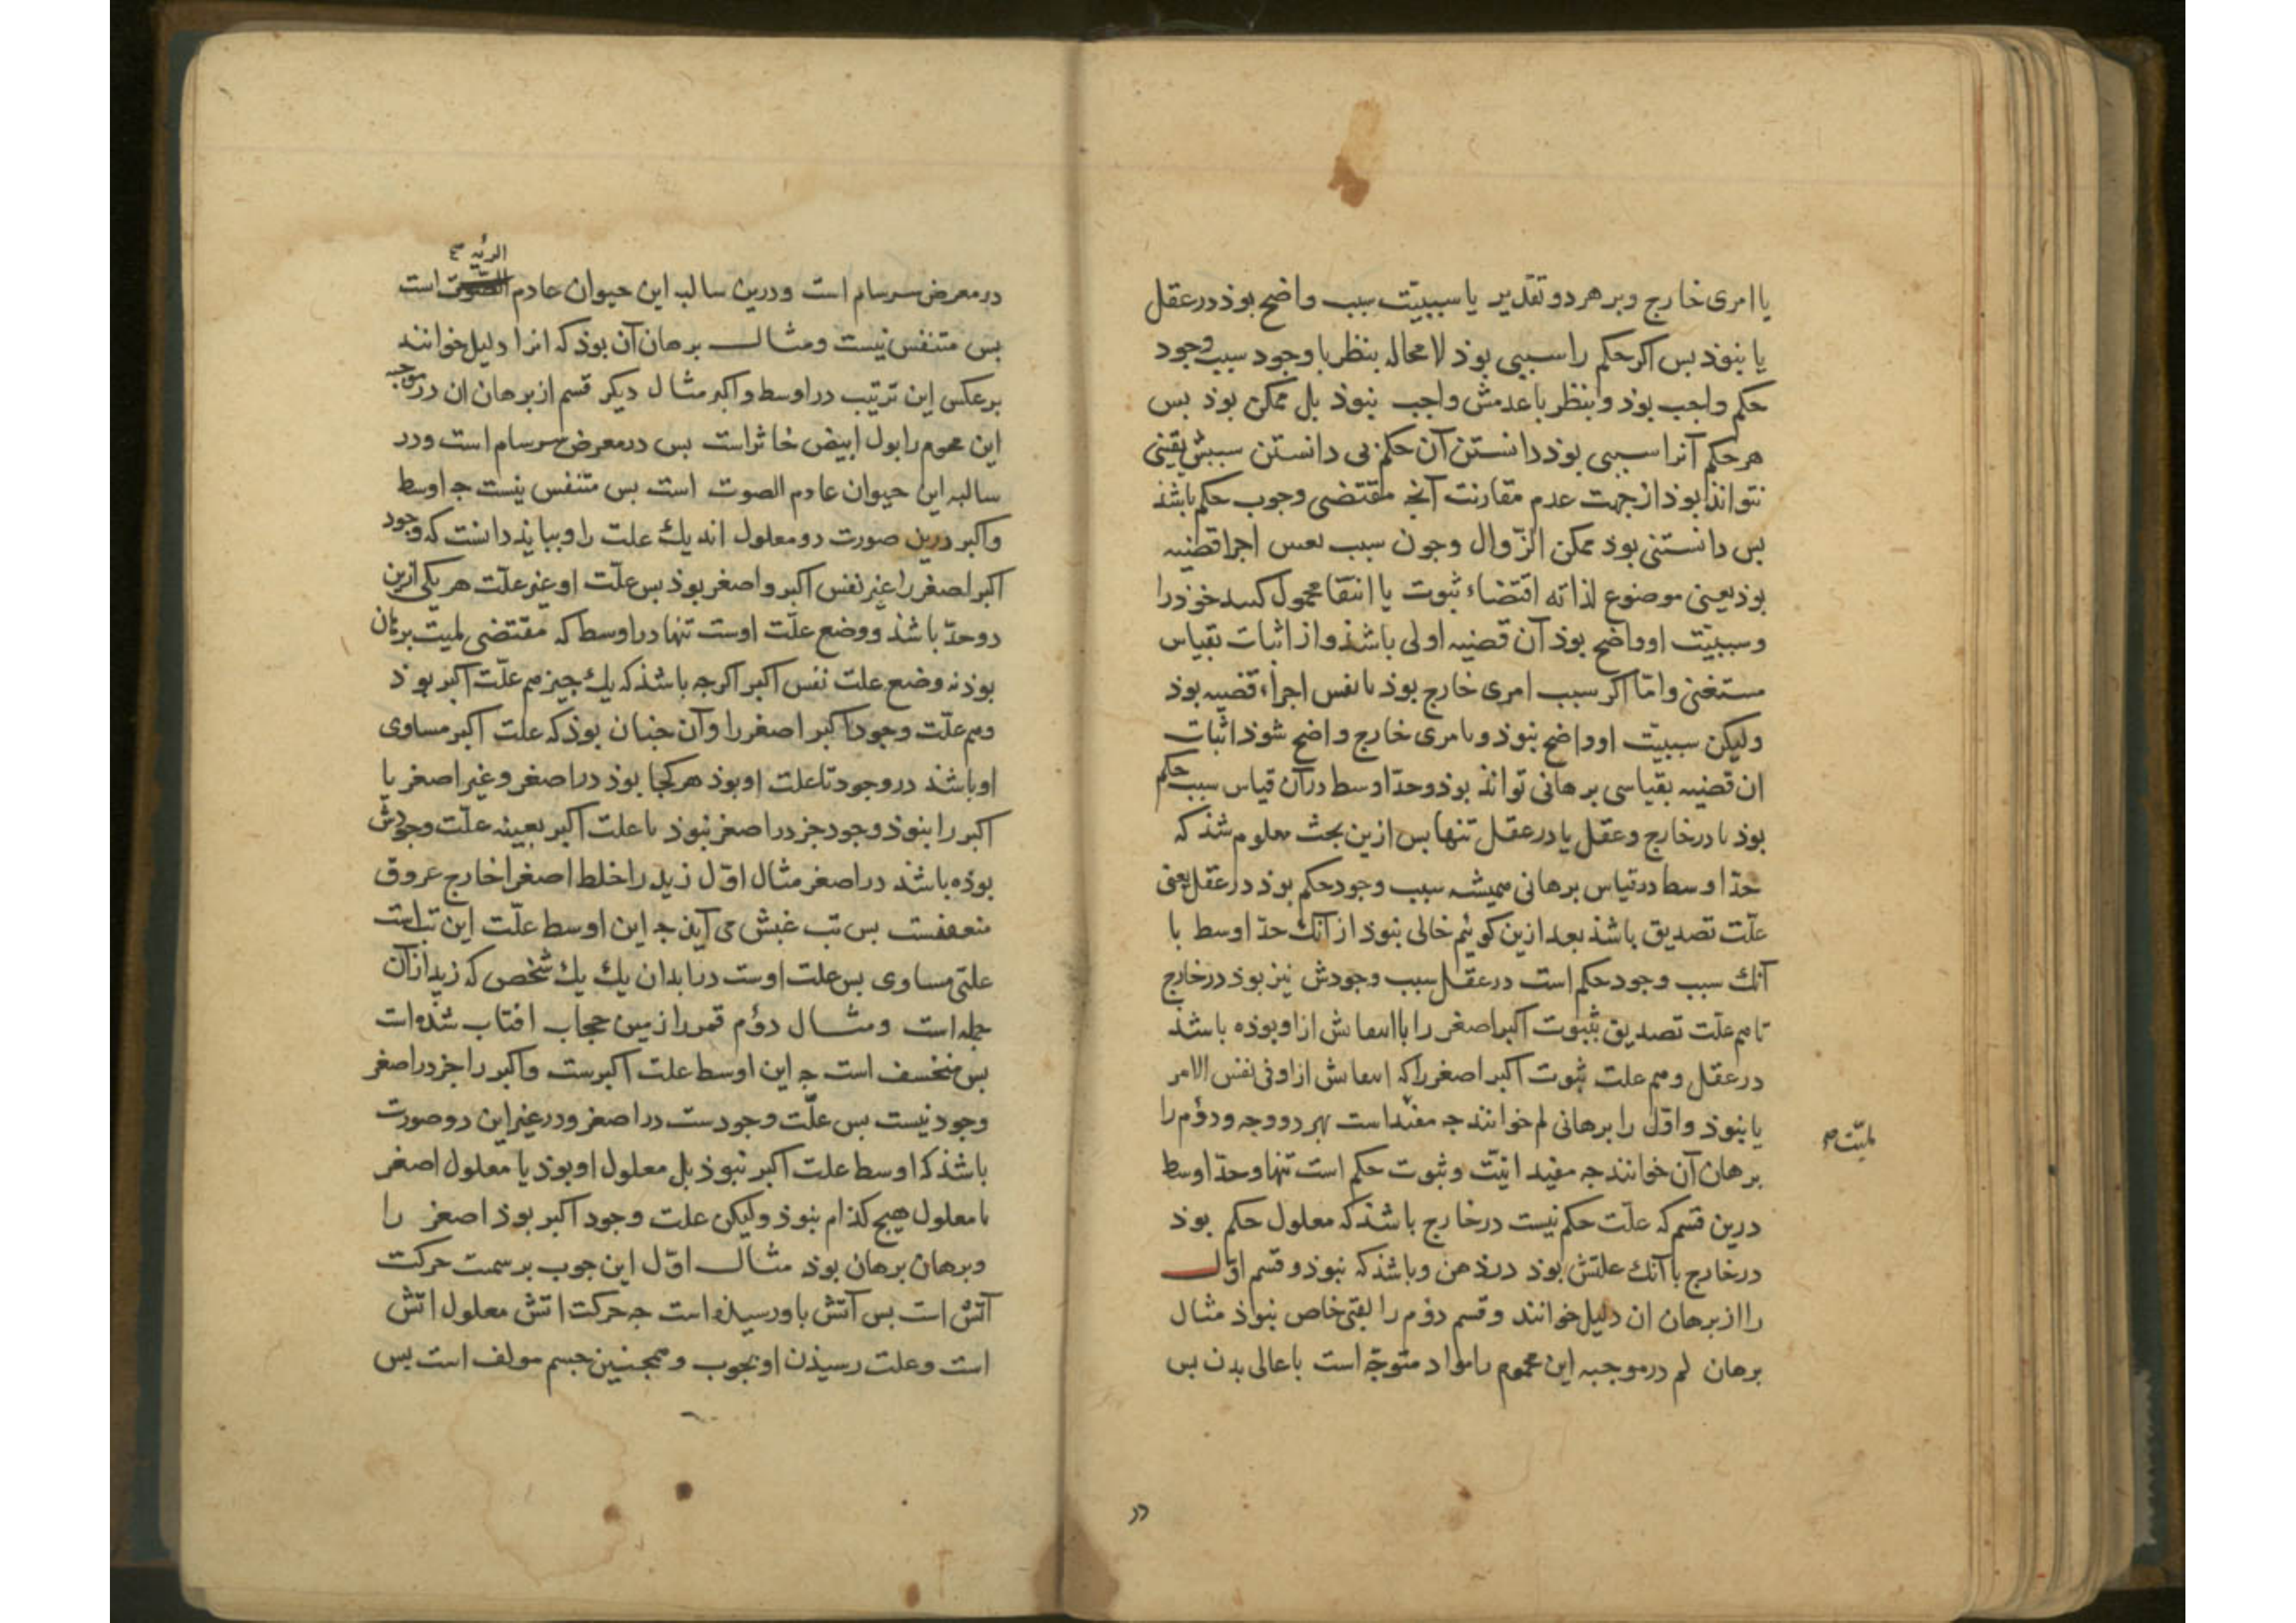 یا امری خارج وبر هر دو تقدیر یا سببیّت سبب واضح بوذ در عقل
یا نبوذ بس اکر حکم را سببی بوذ لا محاله بنظر با وجود سبب وجود
حکم واجب بوذ وبنظر با عدمش واجب نبوذ بل ممکن بوذ بس
هر حکم آنرا سببی بوذ دانستن آن حکم بی دانستن سببش یقینی
نتواند بوذ از جهت عدم مقارنت آنجه مقتضی وجوب حکم باشذ
بس دانستنی بوذ ممکن الزّوال وجون سبب نفس اجزا قضیه
بوذ یعنی موضوع لذاته اقتضاء ثبوت یا انتفا محمول کند خوذ را
وسببیّت او واضح بوذ آن قضیه اولی باشذ واز اثبات بقیاس
مستغنی وامّا اکر سبب امری خارج بوذ یا نفس اجزاء قضیه بوذ
ولیکن سببیّت او واضح نبوذ وبامری خارج واضح شوذ اثبات
ان قضیه بقیاسی برهانی تواند بوذ وحدّ اوسط در آن قیاس سبب حکم
بوذ یا در خارج وعقل یا در عقل تنها بس ازین بحث معلوم شذ که
حدّ اوسط در قیاس برهانی همیشه سبب وجود حکم بوذ در عقل یعنی
علّت تصدیق باشذ بعد ازین کوئیم خالی نبوذ از آنک حدّ اوسط با
آنک سبب وجود حکم است در عقل سبب وجودش نیز بوذ در خارج
تا هم علّت تصدیق بثبوت اکبر اصغر را یا انتفاش ازاو بوذه باشذ
در عقل وهم علت ثبوت اکبر اصغر را که انتفاش ازاو فی نفس الامر
یا نبوذ واوّل را برهانی لم خوانند جه مفید است بهر دو وجه ودوّم را
لمیّت صح
برهان آن خوانند جه مفید انیّت وثبوت حکم است تنها وحدّ اوسط
درین قسم که علّت حکم نیست در خارج باشذ که معلول حکم بوذ
در خارج با آنک علتش بوذ در ذهن وباشذ که نبوذ وقسم اوّل
را از برهان ان دلیل خوانند وقسم دوّم را لقبی خاص نبوذ مثال
برهان لم در موجبه این محموم را مواد متوجّه است باعالی بدن بس
الرئیه صح
در معرض سرسام است ودرین سالبه این حیوان عادم است
بس متنفس نیست ومثال برهان آن بوذ که انرا دلیل خوانند
بر عکس این ترتیب در اوسط واکبر مثال دیکر قسم از برهان ان در موجبه
این محموم را بول ابیض خاثر است بس در معرض سرسام است ودر
سالبه این حیوان عادم الصوت است بس متنفس نیست جه اوسط
واکبر درین صورت دو معلول اند یک علت را وببایذ دانست که وجود
اکبر اصغر را غیر نفس اکبر واصغر بوذ بس علّت او غیر علّت هر یکی ازین
دو حدّ باشذ ووضع علّت اوست تنها در اوسط که مقتضی لمیت برهان
بوذ نه وضع علت نفس اکبر اکرجه باشذ که یک جیز هم علّت اکبر بوذ
وهم علّت وجود اکبر اصغر را وآن جنان بوذ که علت اکبر مساوی
او باشذ در وجود تا علت او بوذ هر کجا بوذ در اصغر وغیر اصغر یا
اکبر را نبوذ وجود جز در اصغر نبوذ یا علت اکبر بعینه علّت وجودش
بوذه باشذ در اصغر مثال اوّل زید را خلط اصفر اخارج عروق
متعفنست بس تب غبش می آیذ جه این اوسط علّت این تب است
علتی مساوی بس علت اوست در ابدان یک یک شخص که زید از آن
جمله است ومثال دوّم قمر را زمین حجاب افتاب شذه است
بس منخسف است جه این اوسط علت اکبرست واکبر را جز در اصغر
وجود نیست بس علّت وجودست در اصغر ودر غیر این دو صورت
باشذ که اوسط علت اکبر نبوذ بل معلول او بوذ یا معلول اصغر
یا معلول هیج کذام نبوذ ولیکن علت وجود اکبر بوذ اصغر را
وبرهان برهان بوذ مثال اوّل این جوب بر سمت حرکت
آتش است بس آتش باو رسیذه است جه حرکت اتش معلول اتش
است وعلت رسیذن او بجوب وهمجنین جسم مولف است بس